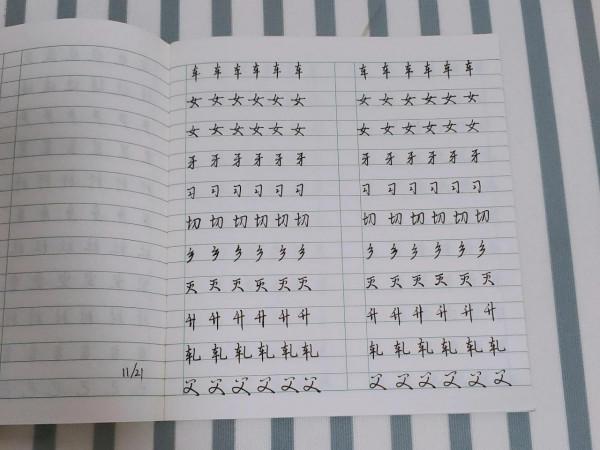 车 车 车 车 车 车 车 车 车 车 车 车
女 女 女 女 女 女 女 女 女 女 女 女
女 女 女 女 女 女 女 女 女 女 女 女
牙 牙 牙 牙 牙 牙 牙 牙 牙 牙 牙 牙
习 习 习 习 习 习 习 习 习 习 习 习
切 切 切 切 切 切 切 切 切 切 切 切
乡 乡 乡 乡 乡 乡 乡 乡 乡 乡 乡 乡
灭 灭 灭 灭 灭 灭 灭 灭 灭 灭 灭 灭
升 升 升 升 升 升 升 升 升 升 升 升
轧 轧 轧 轧 轧 轧 轧 轧 轧 轧 轧 轧
父 父 父 父 父 父 父 父 父 父 父 父
11/21